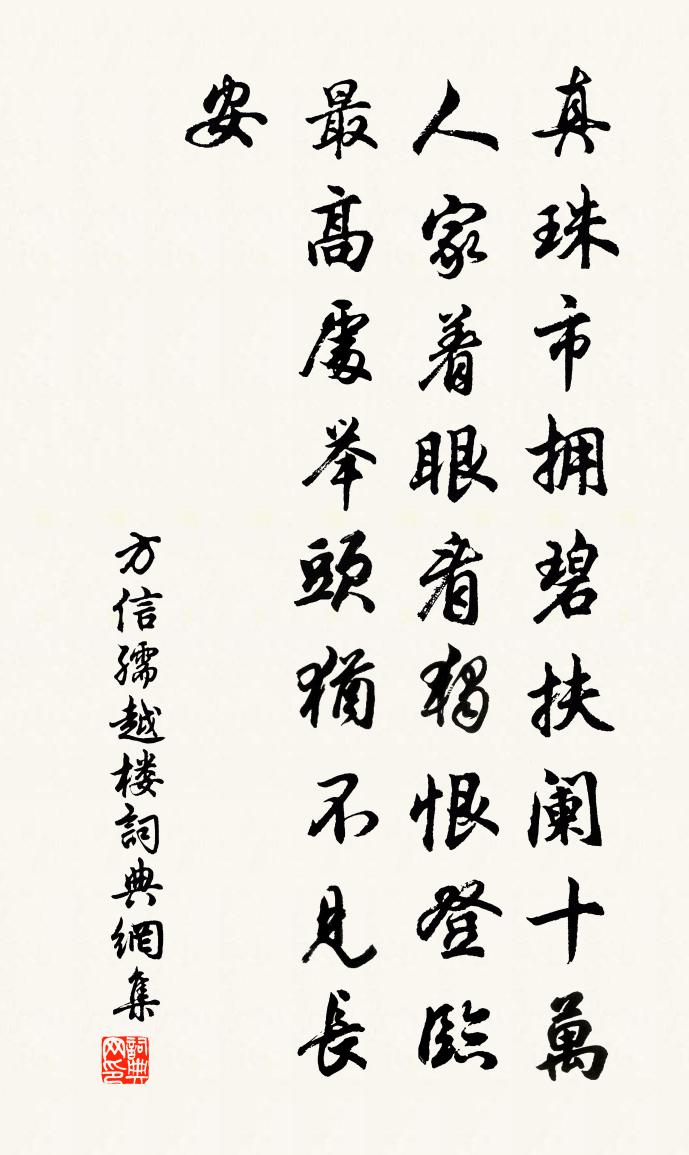 真珠市拥碧扶阑十萬
人家着眼看独恨登臨
最高處举頭猶不見長
安
方信孺越楼詞典網集
詞典网印